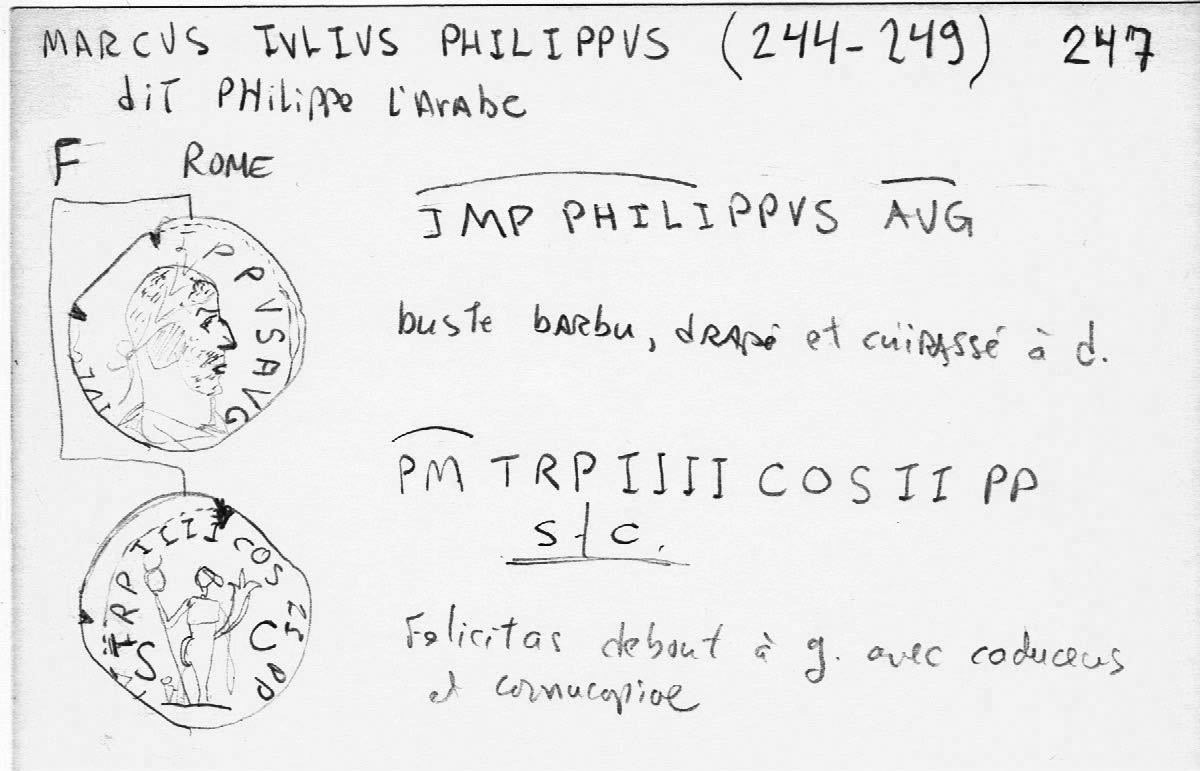 MARCVS IVLIVS PHILIPPVS (244-249) 247
dit PHilippe l'Arabe
F ROME
IMP PHILIPPVS AVG
IVL
IPPVSAVG
buste barbu, drapé et cuirassé à d.
PM TRP IIII COS II PP
S C.
TRP IIII COS II PP
S C
Felicitas debout à g. avec caduceus
et cornucopiae